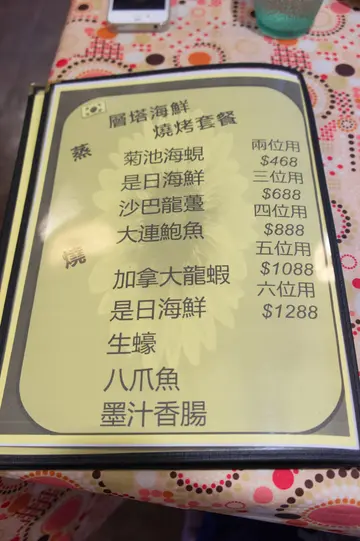 層塔海鮮
燒烤套餐
蒸
菊池海蜆
是日海鮮
沙巴龍躉
大連鮑魚
燒
加拿大龍蝦
是日海鮮
生蠔
八爪魚
墨汁香腸
兩位用
$468
三位用
$688
四位用
$888
五位用
$1088
六位用
$1288